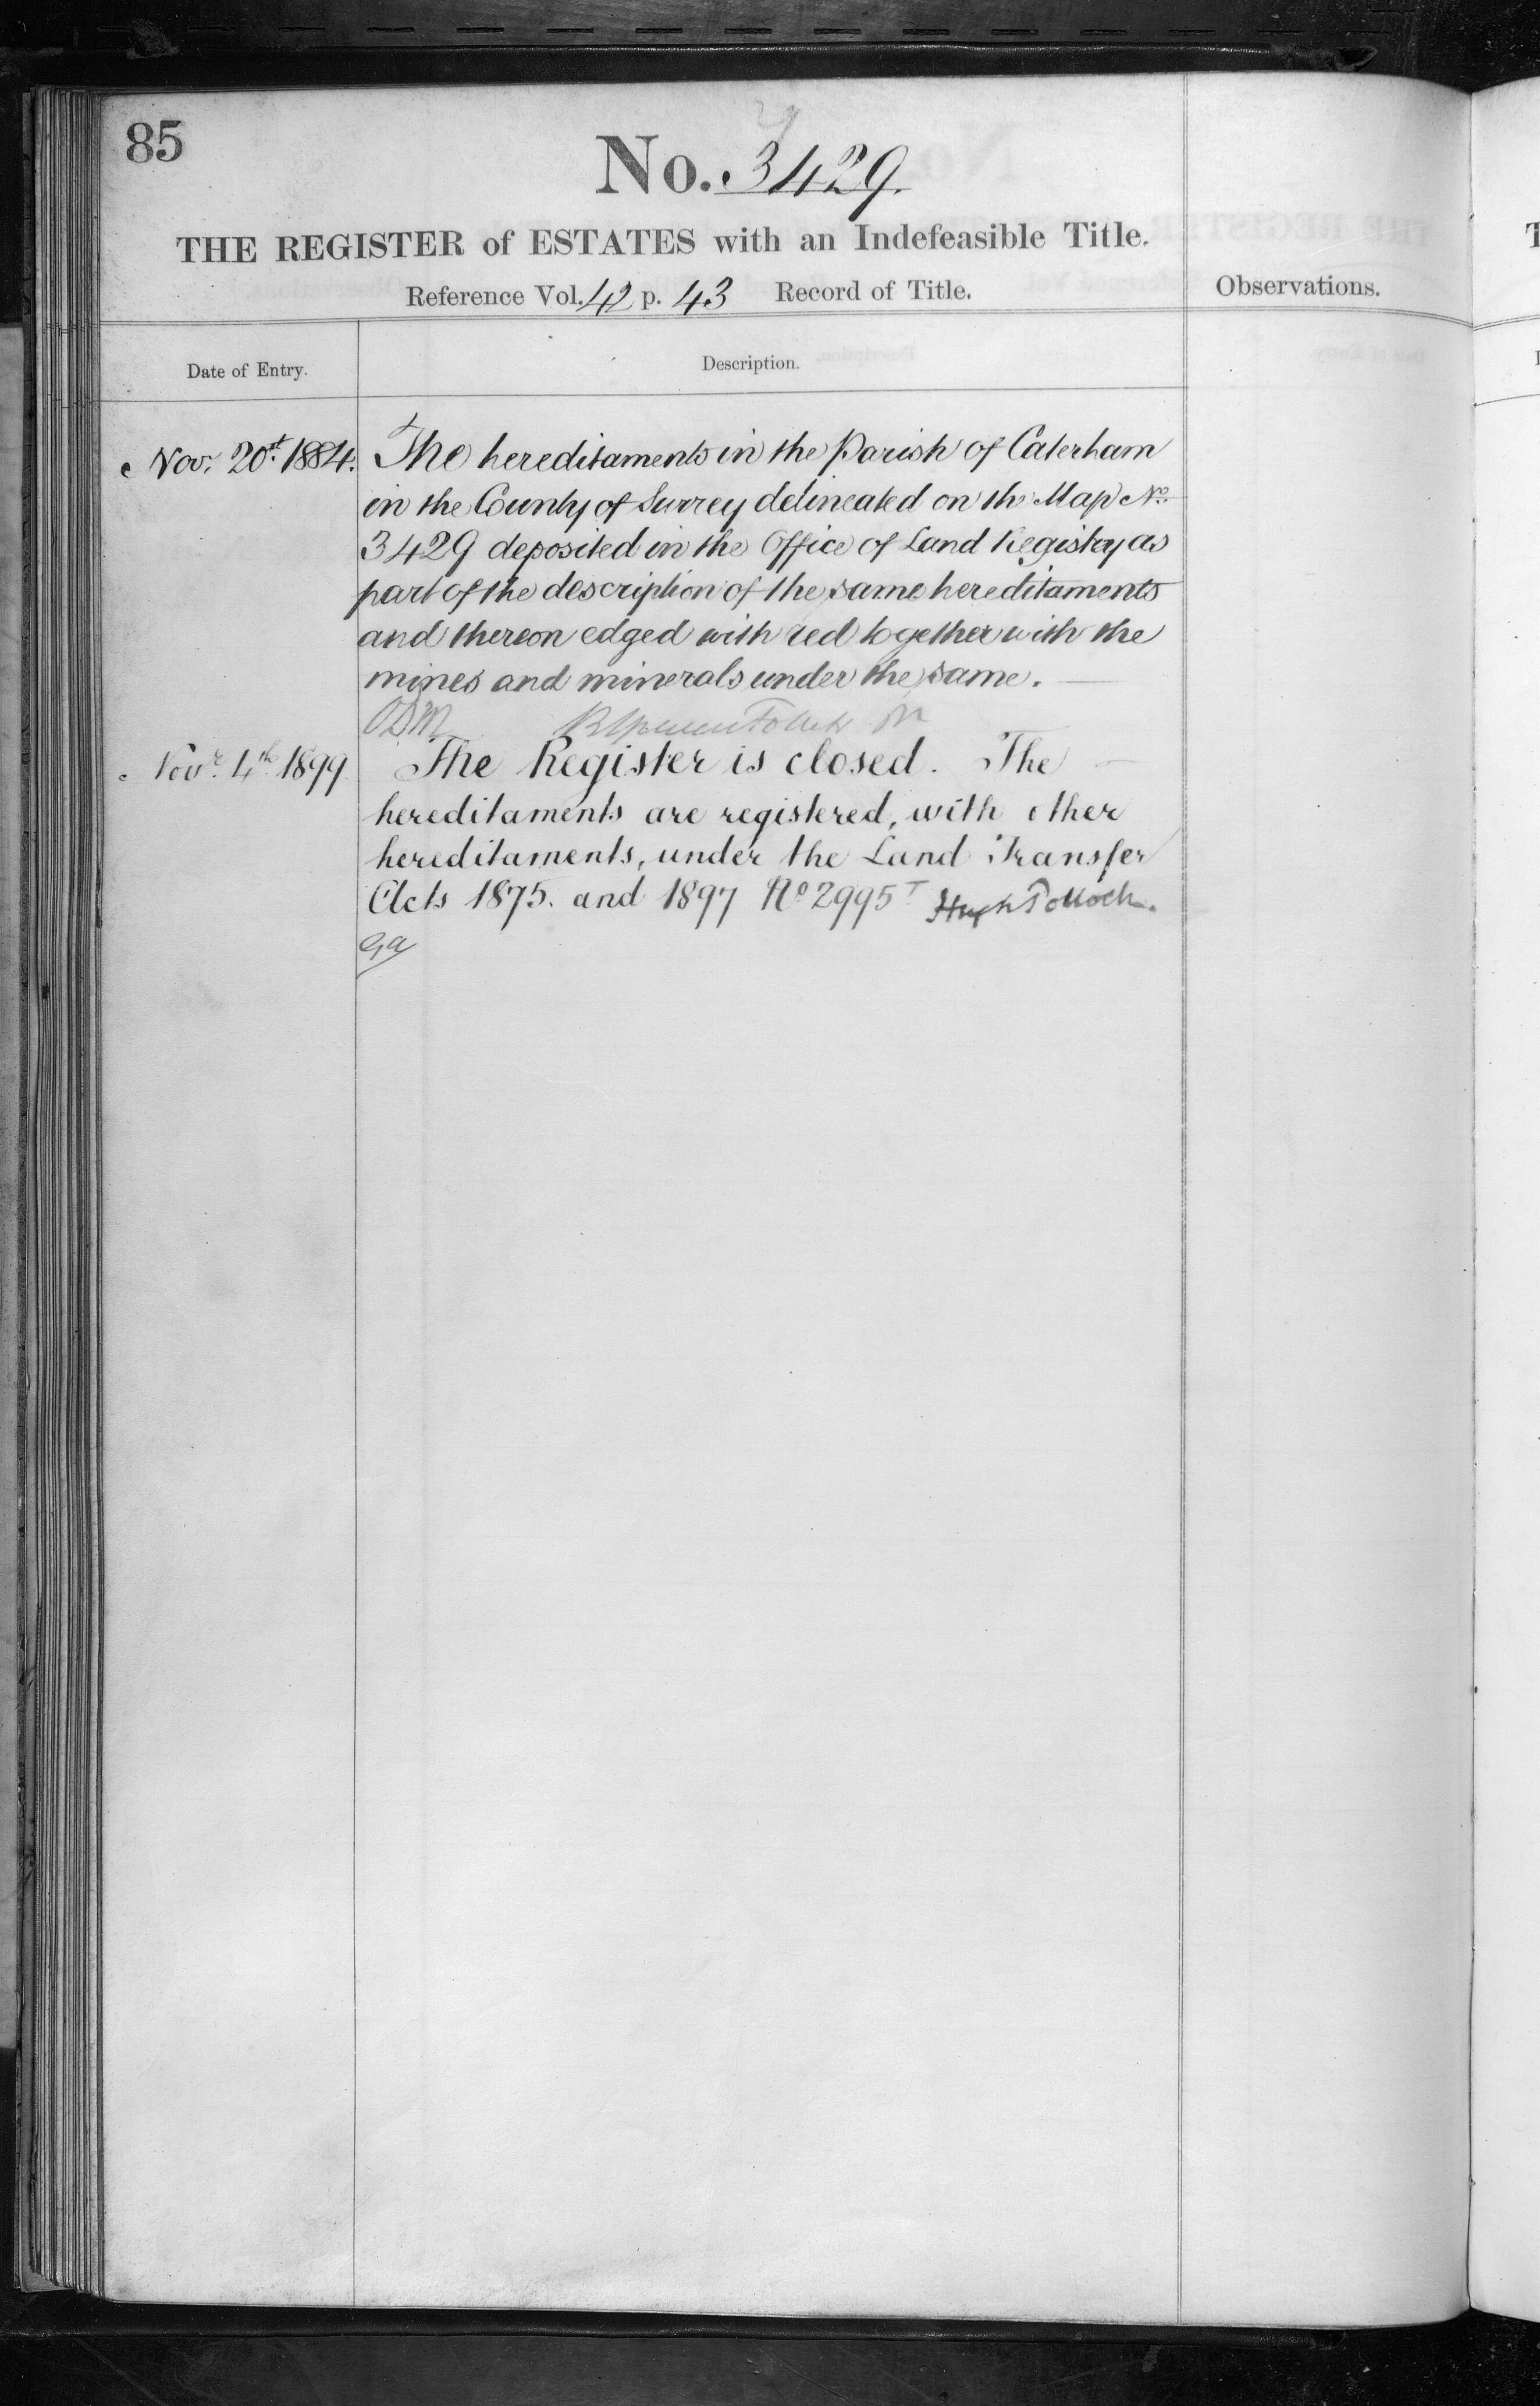 85
No. 3429.
THE REGISTER of ESTATES with an Indefeasible Title.
Reference Vol. 42 p. 43 Record of Title.
Observations.
Date of Entry.
Description.
Nov. 20st 1884. The hereditaments in the Parish of Caterham
in the County of Surrey delineated on the Map No.
3429 deposited in the Office of Land Registry as
part of the description of the same hereditaments
and thereon edged with red together with the
mines and minerals under the same.
Novr. 4th 1899 The Register is closed. The
hereditaments are registered, with other
hereditaments, under the Land Transfer
Acts 1875. and 1897 No 2995T Hugh Pollock.